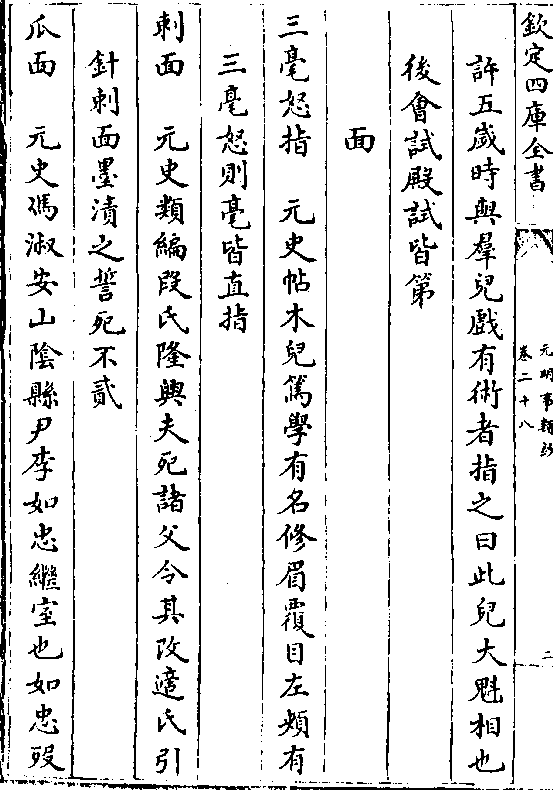 欽定四庫全書
元明事類鈔
卷二十八
二
許五歲時與羣兒戲有術者指之曰此兒大魁相也
後會試殿試皆第
面
三毫怒指　元史帖木兒篤學有名修眉覆目左頰有
三毫怒則毫皆直指
刺面　元史類編段氏隆興夫死諸父令其改適氏引
針刺面墨漬之誓死不貳
爪面　元史馮淑安山陰縣尹李如忠繼室也如忠歿